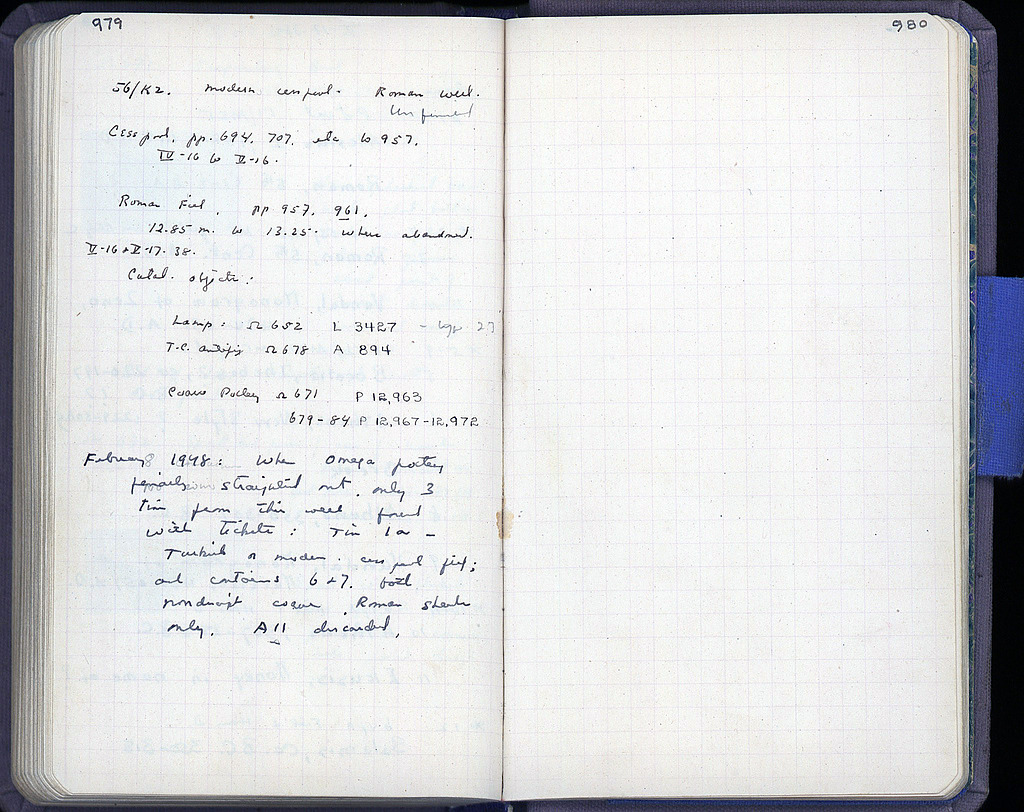 979
56/K2. modern cesspool. Roman well.
Unfinished
Cesspool, pp. 694, 707, etc to 957.
IV-16 to V-16.
Roman Fill, pp 957, 961.
12.85 m. to 13.25. where abandoned.
V-16 + V-17-38.
Catal. objects:
Lamp: Ω 652 L 3427 - type 27
T.C. antefix Ω 678 A 894
Coarse Pottery Ω 671 P 12,963
679-84 P 12,967-12,972
February 1948: When Omega pottery
finally straightened out, only 3
tins from this well found
with tickets: Tin 1a -
Turkish or modern cesspool fill;
and containers 6 + 7. both
nondescript coarse Roman sherds
only. All discarded.
980